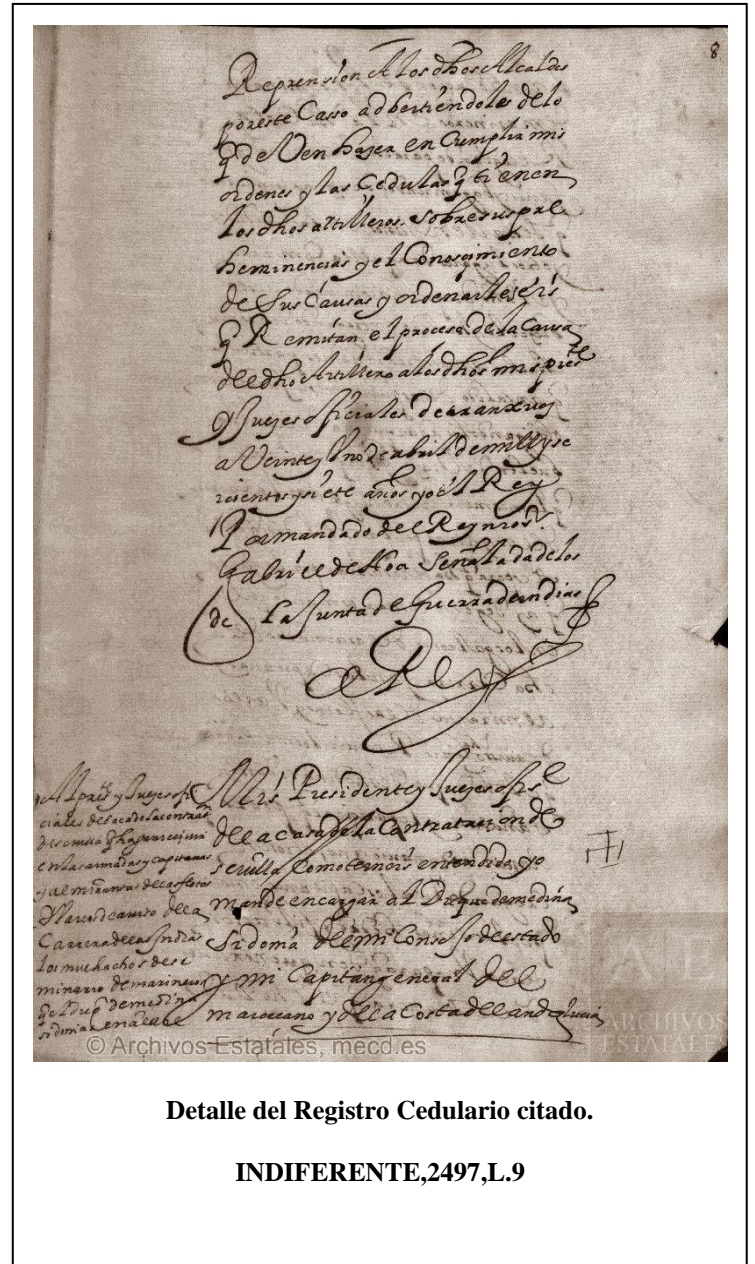 8
Reprension A los dhos Alcaldes
por este Casso adbertiendoles de lo
q deVen hazer en Cumplir mis
ordenes y las Cedulas q tienen
los dhos artilleros sobre sus pre
heminencias y el Conoscimiento
de Sus Causas y ordenarles eis
q Remitan el proceso de la Causa
del dho Artillero a los dhos mis press.te
y Juezes officiales de aranxuez
a Veinte y Uno de abril de mill y se
iscientos y siete años yo el Rey
Por mandado del Rey nro s.r
Gabriel de Hoa Señalada de los
de La Junta de Guerra de indias
Al pres.te y Juezes offi
ciales de la cassa de la contraon
de seuilla
en las armadas y capitanas
y almirantas de las flotas
y naos de auiso de la
Carrera de las Indias
los muchachos del se
minario de marineros
q el duq de medina
sidonia
Mis Presidente y Juezes offis
de la cassa de la Contratacion de
seuilla como terneis entendido yo
mande encargar al Duque de medina
Sidonia del mi Consejo de estado
y mi Capitan general del
mar occeano y de la Costa del andalucia
© Archivos Estatales, mecd.es
ARCHIVOS
ESTATALES
Detalle del Registro Cedulario citado.
INDIFERENTE,2497,L.9